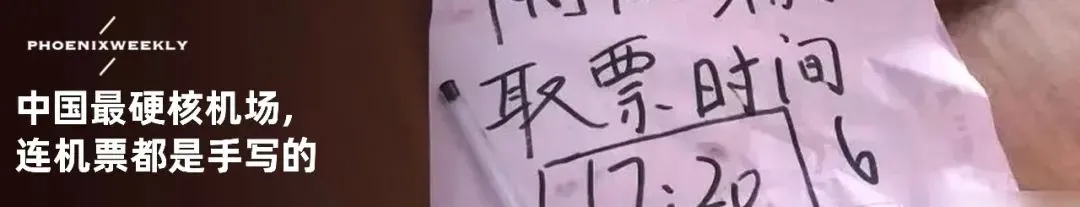 PHOENIXWEEKLY
中国最硬核机场,
连机票都是手写的
取票时间
17:20
6